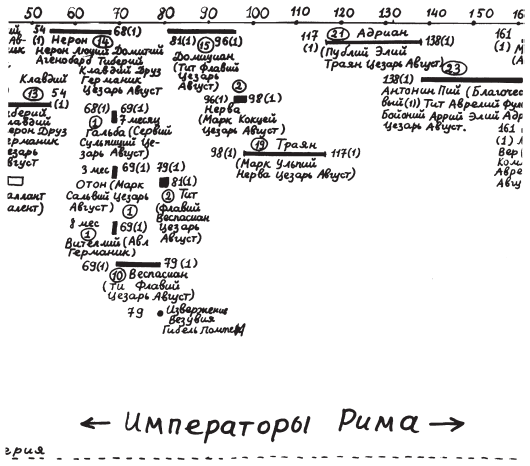 50 60 70 80 90 100 110 120 130 140 150
54 68(1)
(1) Нерон 14
Нерон Люций Домиций
Агенобард Тиберий
Клавдий Друз
Германик
Цезарь Август
81(1) 15 96(1)
Домициан
(Тит Флавий
Цезарь
Август)
117 21 Адриан
(1) 138(1)
(Публий Элий
Траян Цезарь Август)
161
138(1) 23
Антонин Пий (Благочес
вый(1)) Тит Аврелий Фул
Бойоний Аррий Элий Адр
Цезарь Август. 161
(1)
Вер
Ком
Авре
Авгу
Клавдий
13 54
(1)
иберий
лавдий
ерон Друз
ерманик
езарь
вгуст
аллант
алент)
68(1) 69(1)
1 7 месяц
Гальба (Сервий
Сульпиций Це-
зарь Август)
2
96(1) 98(1)
Нерва
(Марк Кокцей
Цезарь Август)
19 Траян
98(1) 117(1)
(Марк Ульпий
Нерва Цезарь Август)
3 мес 69(1)
Отон (Марк
Сальвий Цезарь
Август) 1
79(1)
81(1)
2 Тит
(Флавий
Веспасиан
Цезарь
Август)
8 мес
1 69(1)
Вителлий (Авл
Германик)
69(1) 79(1)
10 Веспасиан
(Ти Флавий
Цезарь Август)
79 Извержение
Везувия
Гибель Помпей
← Императоры Рима →
ерия